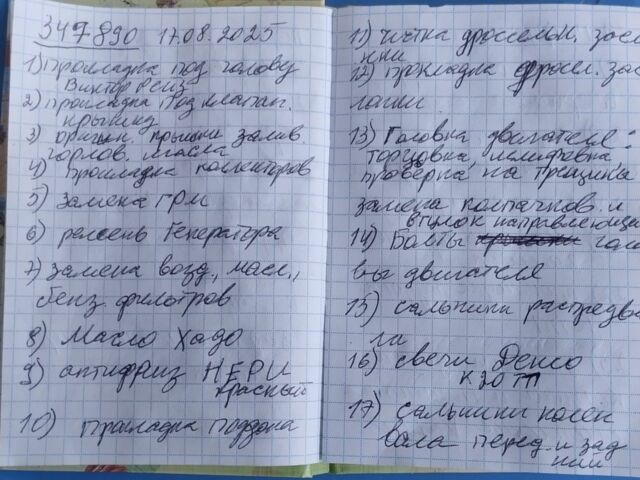 347890 17.08.2025
1) прокладка под голову
Виктор Рейз
2) прокладка под клапан.
крышку
3) оригин. крышки залив.
горлов. масла
4) прокладка коллекторов
5) замена ГРМ
6) ремень Генератора
7) замена возд., масл.,
бенз. фильтров
8) Масло Хадо
9) антифриз НЕРИ
красный
10) прокладка поддона
11) чистка дроссельн. засл
нки
12) прокладка дросс. зас
лонки
13) Головка двигателя:
торцовка, шлифовка
проверка на трещины
замена колпачков и
втулок направляющи
14) Болты гол
вы двигателя
15) сальники распредва
ла
16) свечи Денсо
К20ТТ
17) сальники колен
вала перед. и зад
ний